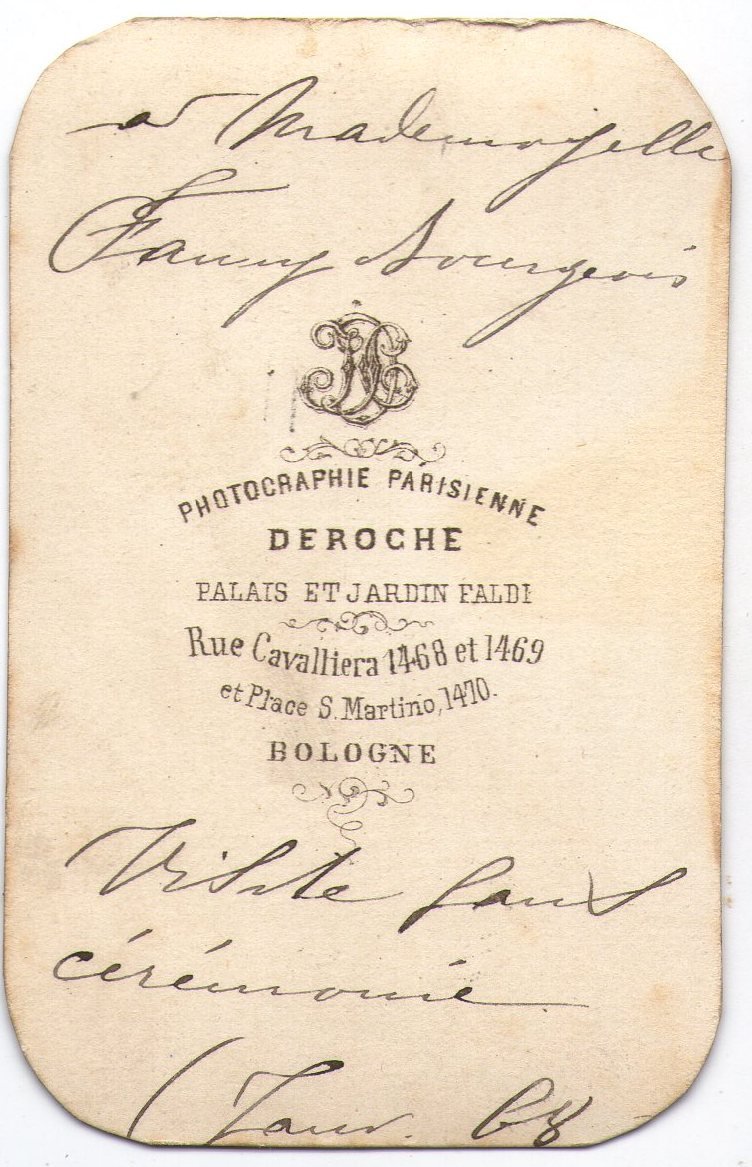 a Mademoyselle
Fanny Bourgeois
PHOTOGRAPHIE PARISIENNE
DEROCHE
PALAIS ET JARDIN FALDI
Rue Cavalliera 1468 et 1469
et Place S. Martino, 1470.
BOLOGNE
Visite sans
cérémonie
(Janv. 68